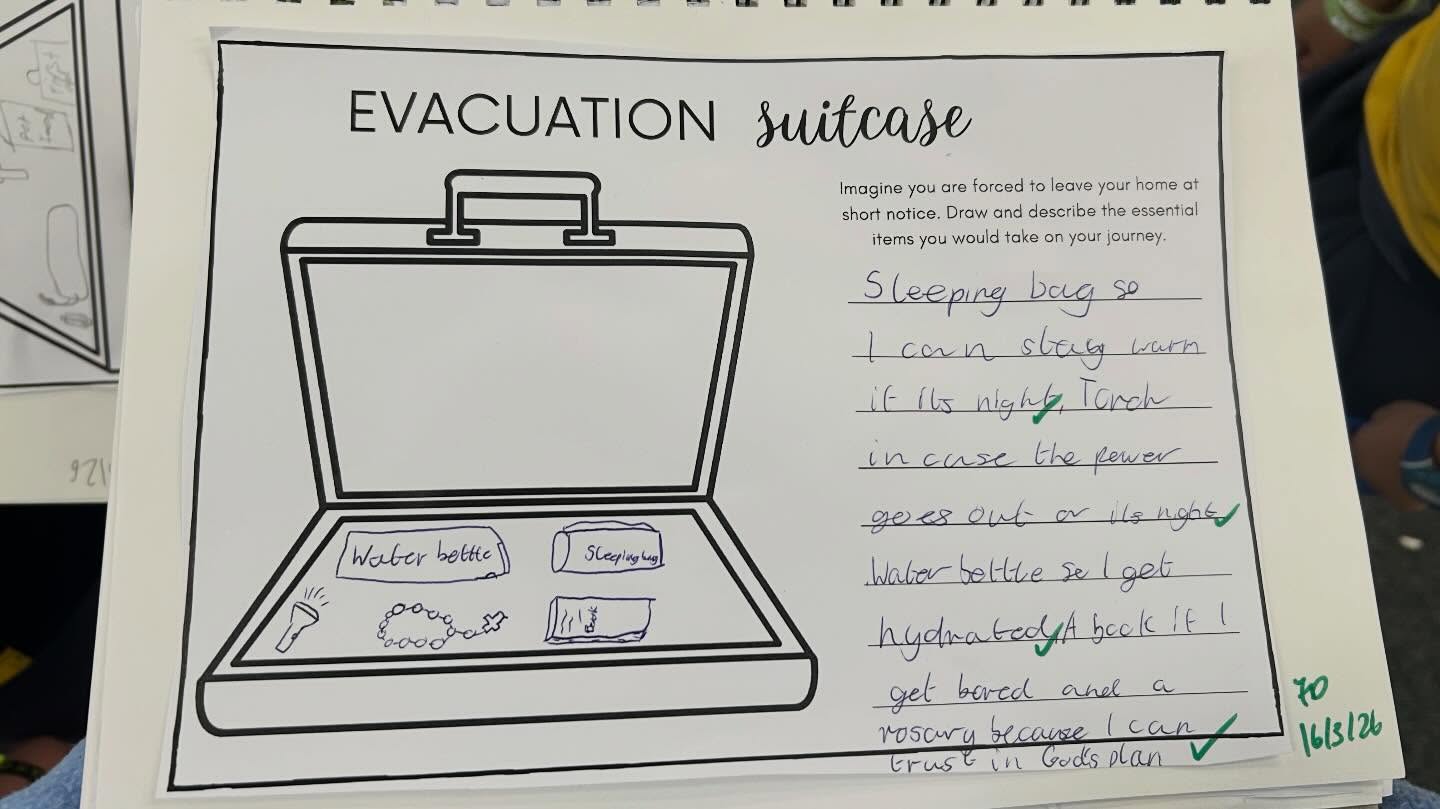 EVACUATION suitcase
Imagine you are forced to leave your home at
short notice. Draw and describe the essential
items you would take on your journey.
Sleeping bag so
I can stay warm
if its night, Torch
in case the power
goes out or its night
Water bottle so I get
hydrated, A book if I
get bored and a
rosary because I can
trust in God's plan
Water bottle
Sleeping bag
Book
70
16/3/26